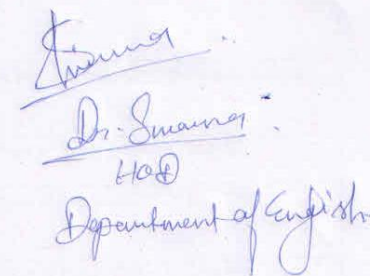 Dr. Smarna
HOD
Department of English